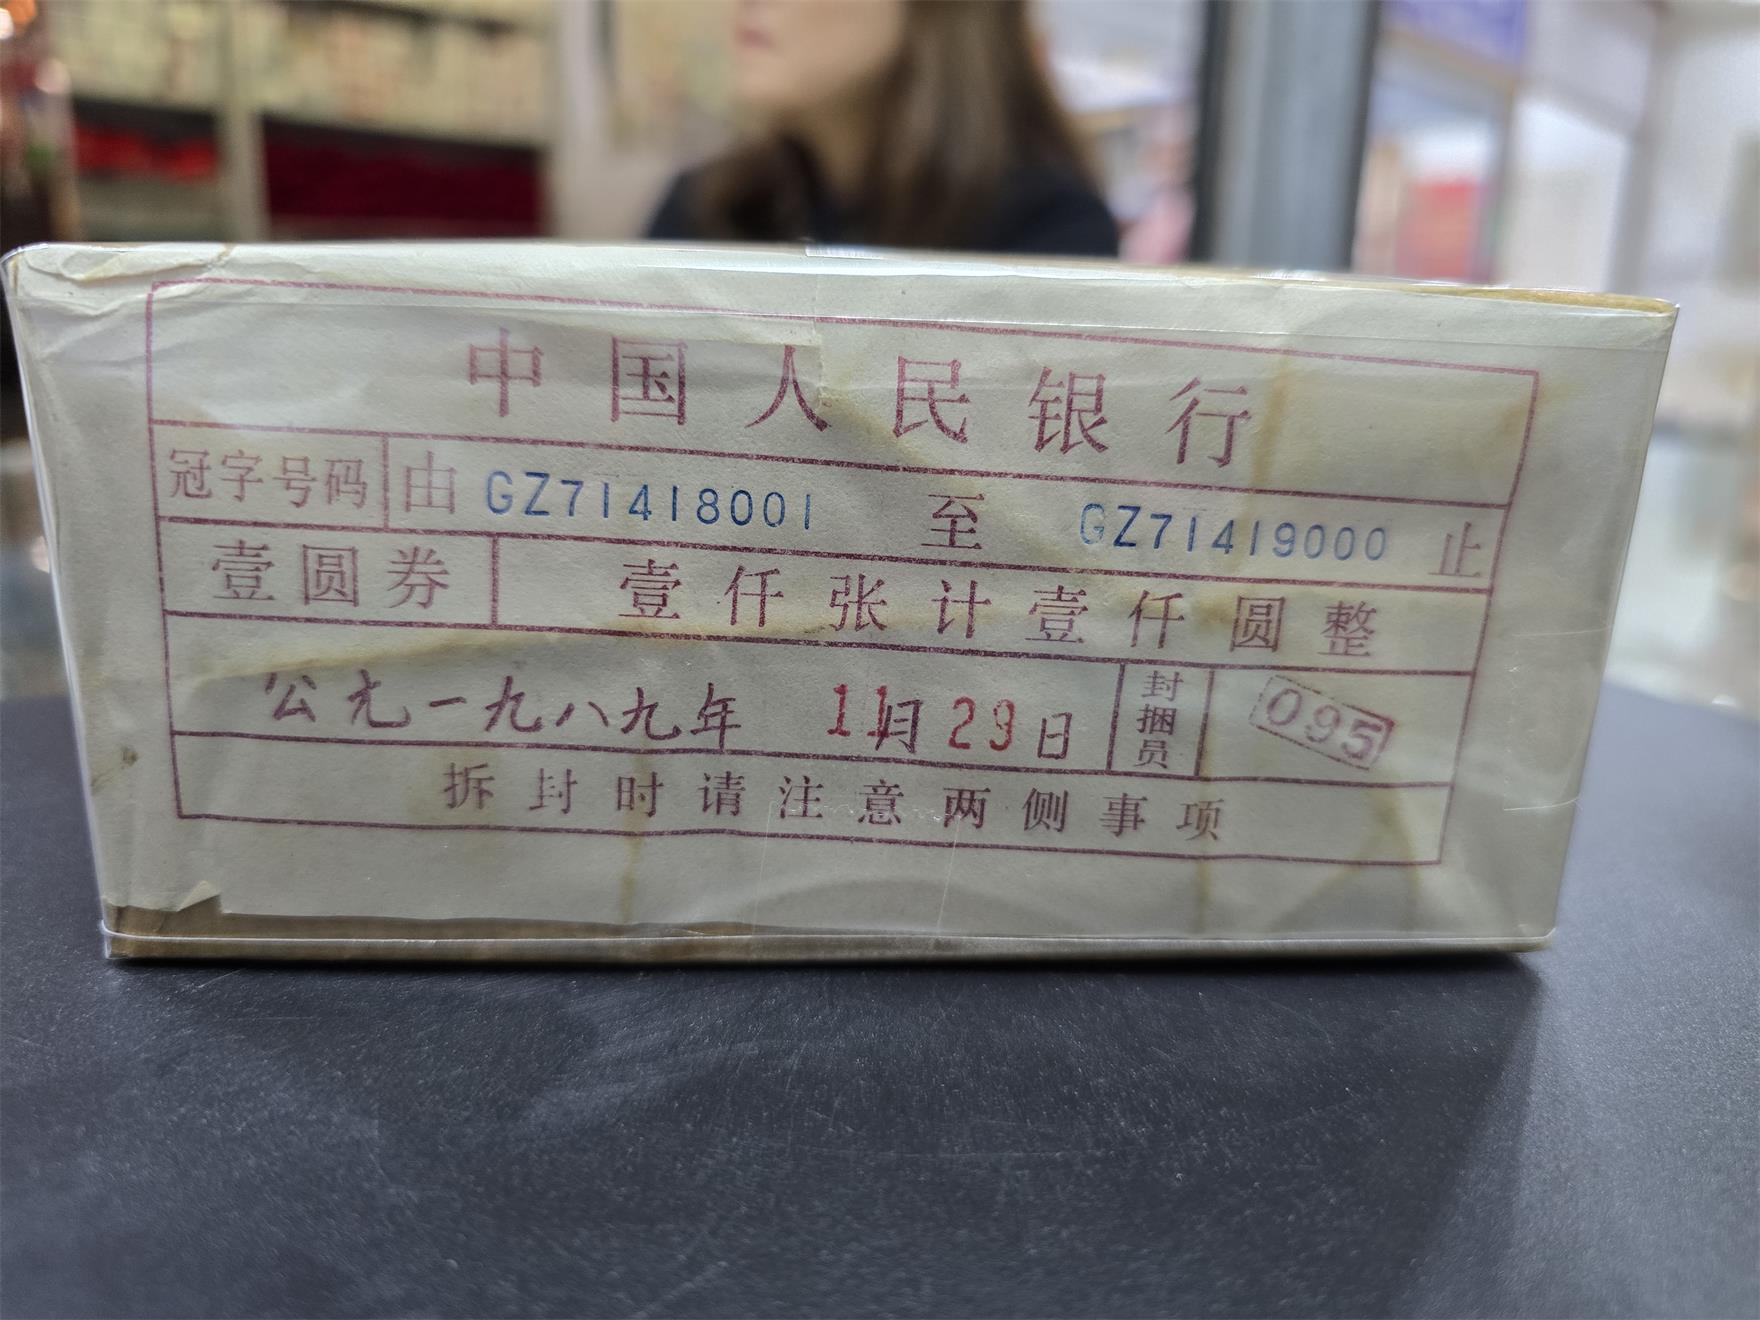 中国人民银行
冠字号码 由 GZ71418001 至 GZ71419000 止
壹圆券 壹仟张计壹仟圆整
公元一九八九年 11月29日 封捆员 095
拆封时请注意两侧事项